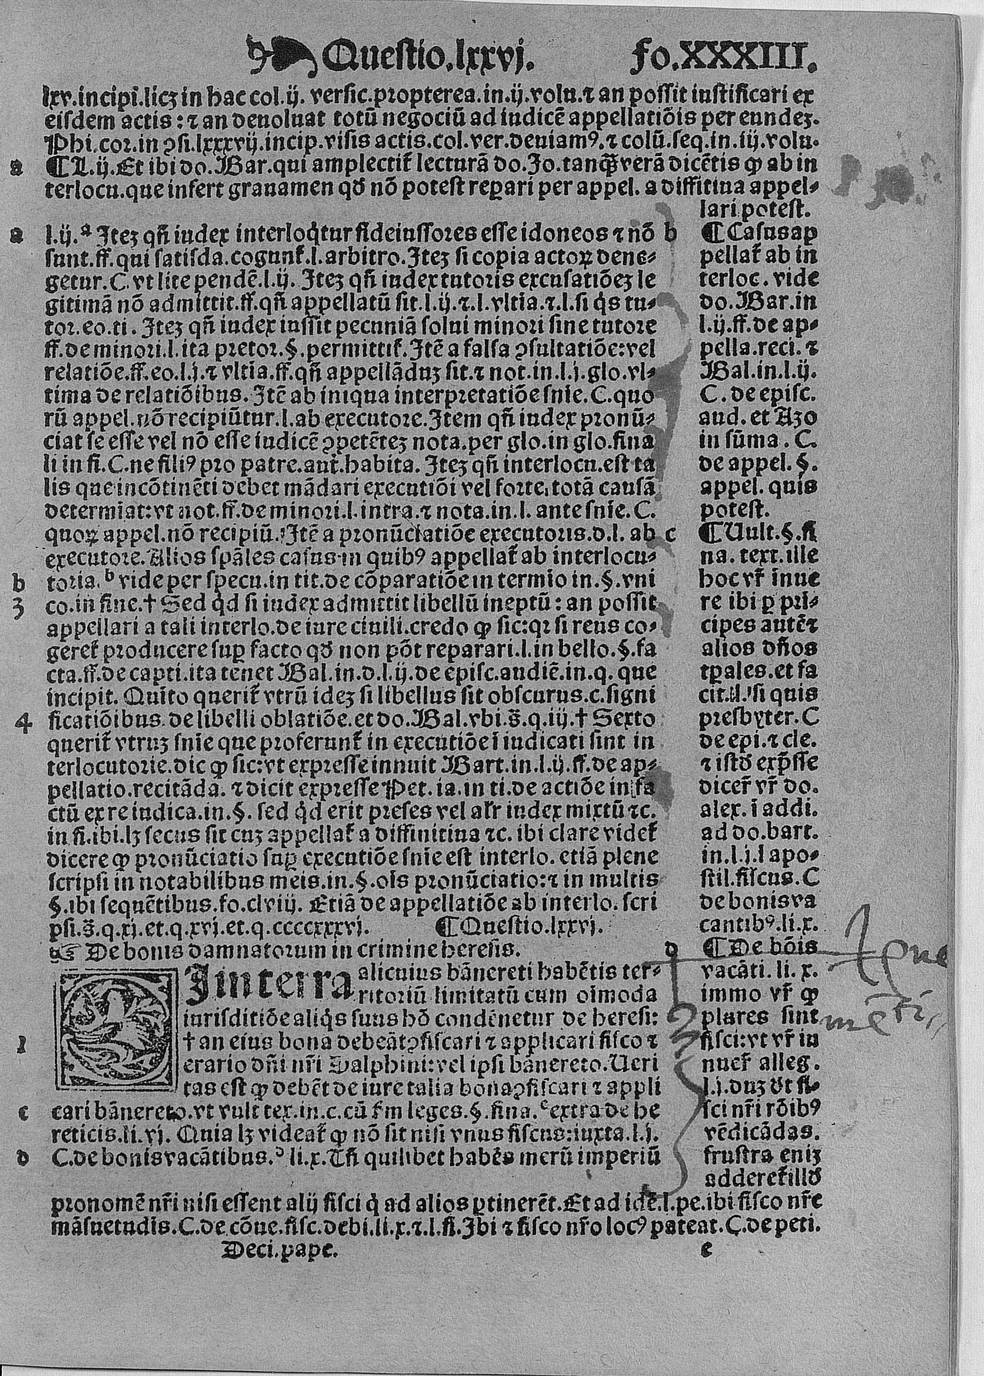 Questio.lxxvj. fo.XXXIII.
lxv.incipi.licꝫ in hac col.ij. versic.propterea.in.ij.volu.⁊ an possit iustificari ex
eisdem actis:⁊ an deuoluat totū negociū ad iudicē appellatiōis per eundeꝫ.
Phi.cor.in ꝯsi.lxxxvij.incip.visis actis.col.ver.deuiamꝰ.⁊ colū.seq.in.iij.volu.
a ¶L.ij.Et ibi do.Bar.qui amplectit̄ lecturā do.Jo.tanqꝫ verā dicētis ꝙ ab in
terlocu.que infert grauamen qđ nō potest repari per appel. a diffitiua appel-
lari potest.
a l.ij.ª Iteꝫ qn̄ iudex interloq̄tur fideiussores esse idoneos ⁊ nō
sunt.ff.qui satisda.cogunt̄.l.arbitro.Iteꝫ si copia actoꝝ dene-
getur.C.vt lite pendē.l.ij. Iteꝫ qn̄ iudex tutoris excusatiōeꝫ le
gitimā nō admittit.ff.qn̄ appellatū sit.l.ij.⁊.l.vltia.⁊.l.si q̇s tu-
tor.eo.ti. Iteꝫ qn̄ iudex iussit pecuniā solui minori sine tutore
ff.de minori.l.ita pretor.§.permittit̄.Itē a falsa ꝯsultatiōe:vel
relatiōe.ff.eo.l.j.⁊ vltia.ff.qn̄ appellāduꝫ sit.⁊ not.in.l.j.glo.vl-
tima de relatiōibus.Itē ab iniqua interpretatiōe snīe.C.quo
rū appel.nō recipiūtur.l.ab executore.Item qn̄ iudex pronū-
ciat se esse vel nō esse iudicē ꝯpetēteꝫ nota.per glo.in glo.fina
li in fi.C.ne filiꝰ pro patre.aut̄.habita. Iteꝫ qn̄ interlocu.est ta
lis que incōtinēti debet mādari executiōi vel forte.totā causā
determiat:vt not.ff.de minori.l.intra.⁊ nota.in.l. ante snīe.C.
quoꝝ appel.nō recipiū.Itē a pronūciatiōe executoris.d.l. ab
executore.Alios spāles casus in quibꝰ appellat̄ ab interlocu-
b toria.ᵇ vide per specu.in tit.de cōparatiōe in termio in.§.vni
3 co.in fine.† Sed q̇d si iudex admittit libellū ineptū: an possit
appellari a tali interlo.de iure ciuili.credo ꝙ sic:qꝛ si reus co-
geret̄ producere suꝑ facto qđ non pōt reparari.l.in bello.§.fa
cta.ff.de capti.ita tenet Bal.in.d.l.ij.de episc.audiē.in.q. que
incipit. Quīto querit̄ vtrū ideꝫ si libellus sit obscurus.c.signi
4 ficatiōibus.de libelli oblatiōe.et do.Bal.vbi.s̄.q.iij.† Sexto
querit̄ vtruꝫ snīe que proferunt̄ in executiōe ī iudicati sint in
terlocutorie.dic ꝙ sic:vt expresse innuit Bart.in.l.ij.ff.de ap-
pellatio.recitāda. ⁊ dicit expresse Pet.ia.in ti.de actiōe in fa
ctū ex re iudica.in.§. sed q̇d erit preses vel alr̄ iudex mixtū ⁊c.
in fi.ibi.lꝫ secus sit cuꝫ appellat̄ a diffinitiua ⁊c. ibi clare videt̄
dicere ꝙ pronūciatio suꝑ executiōe snīe est interlo. etiā plene
scripsi in notabilibus meis.in.§.oīs pronūciatio:⁊ in multis
§.ibi sequētibus.fo.clviij. Etiā de appellatiōe ab interlo. scri
psi.s̄.q.xj.et.q.xvj.et.q.ccccxxxvj. ¶Questio.lxxvj.
☞ De bonis damnatorum in crimine heresis.
SI in terra alicuius bānereti habētis ter-
ritoriū limitatū cum oīmoda
iurisditiōe aliq̇s suus hō condēnetur de heresi:
1 † an eius bona debeāt ꝯfiscari ⁊ applicari fisco ⁊
erario dn̄i nr̄i Dalphini:vel ipsi bānereto.Veri
tas est ꝙ debēt de iure talia bona ꝯfiscari ⁊ appli
c cari bānereto.vt vult tex.in.c.cū fm leges.§.fina.ᶜ extra de he
reticis.li.vj. Quia lꝫ videat̄ ꝙ nō sit nisi vnus fiscus:iuxta.l.j.
d C.de bonis vacātibus.ᵈ li.x.Tn̄ quilibet habēs merū imperiū
b ¶Casus ap
pellat̄ ab in
terloc. vide
do.Bar.in
l.ij.ff.de ap-
pella.reci. ⁊
Bal.in.l.ij.
C. de episc.
aud. et Azo
in sūma. C.
de appel. §.
appel. quis
potest.
c ¶Uult.§.fi
na. text.ille
hoc vr̄ īnue
re ibi ꝑ pri-
cipes autē⁊
alios dn̄os
tpales.et fa
cit.l.si quis
presbyter.C
de epi.⁊ cle.
⁊ istđ exp̄sse
dicer̄ vr̄ do.
alex. ī addi.
ad do.bart.
in.l.j.l apo-
stil.fiscus.C
de bonis va
cantibꝰ.li.x.
d ¶De bōis
vacāti. li. x.
immo vr̄ ꝙ
plures sint
fisci:vt vr̄ in
nuer̄ alleg.
l.j.duꝫ đt fi-
sci nr̄i rōibꝰ
vēdicādas.
frustra eniꝫ
adderet̄ illđ
pronomē nr̄i nisi essent alij fisci q̇ ad alios ꝑtinerēt.Et ad idē.l.pe.ibi fisco nr̄e
māsuetudīs.C.de cōue.fisc.debi.li.x.⁊.l.fi.Ibi ⁊ fisco nr̄o locꝰ pateat.C.de peti.
Deci.pape. e